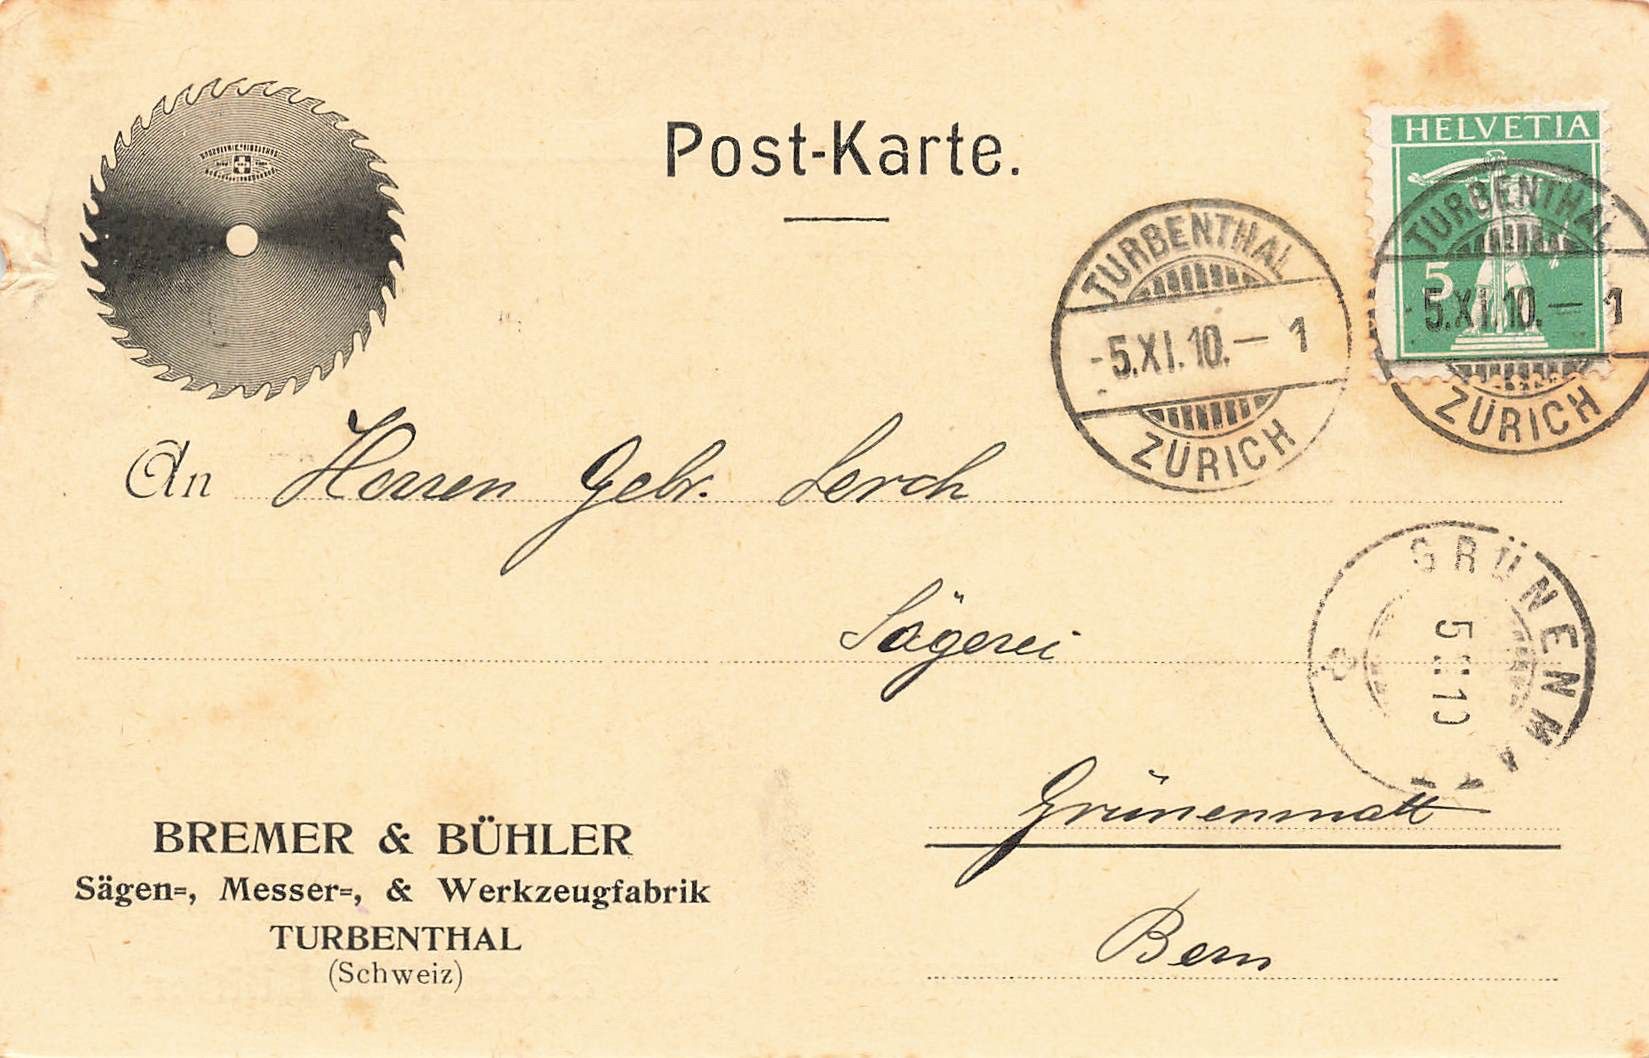 Post-Karte.
HELVETIA
5
TURBENTHAL
-5.XI.10.— 1
ZÜRICH
TURBENTHAL
5.XI.10.— 1
ZÜRICH
An Herren Gebr. Lerch
Sägerei
Grünenmatt
Bern
GRÜNENMATT
BREMER & BÜHLER
Sägen=, Messer=, & Werkzeugfabrik
TURBENTHAL
(Schweiz)